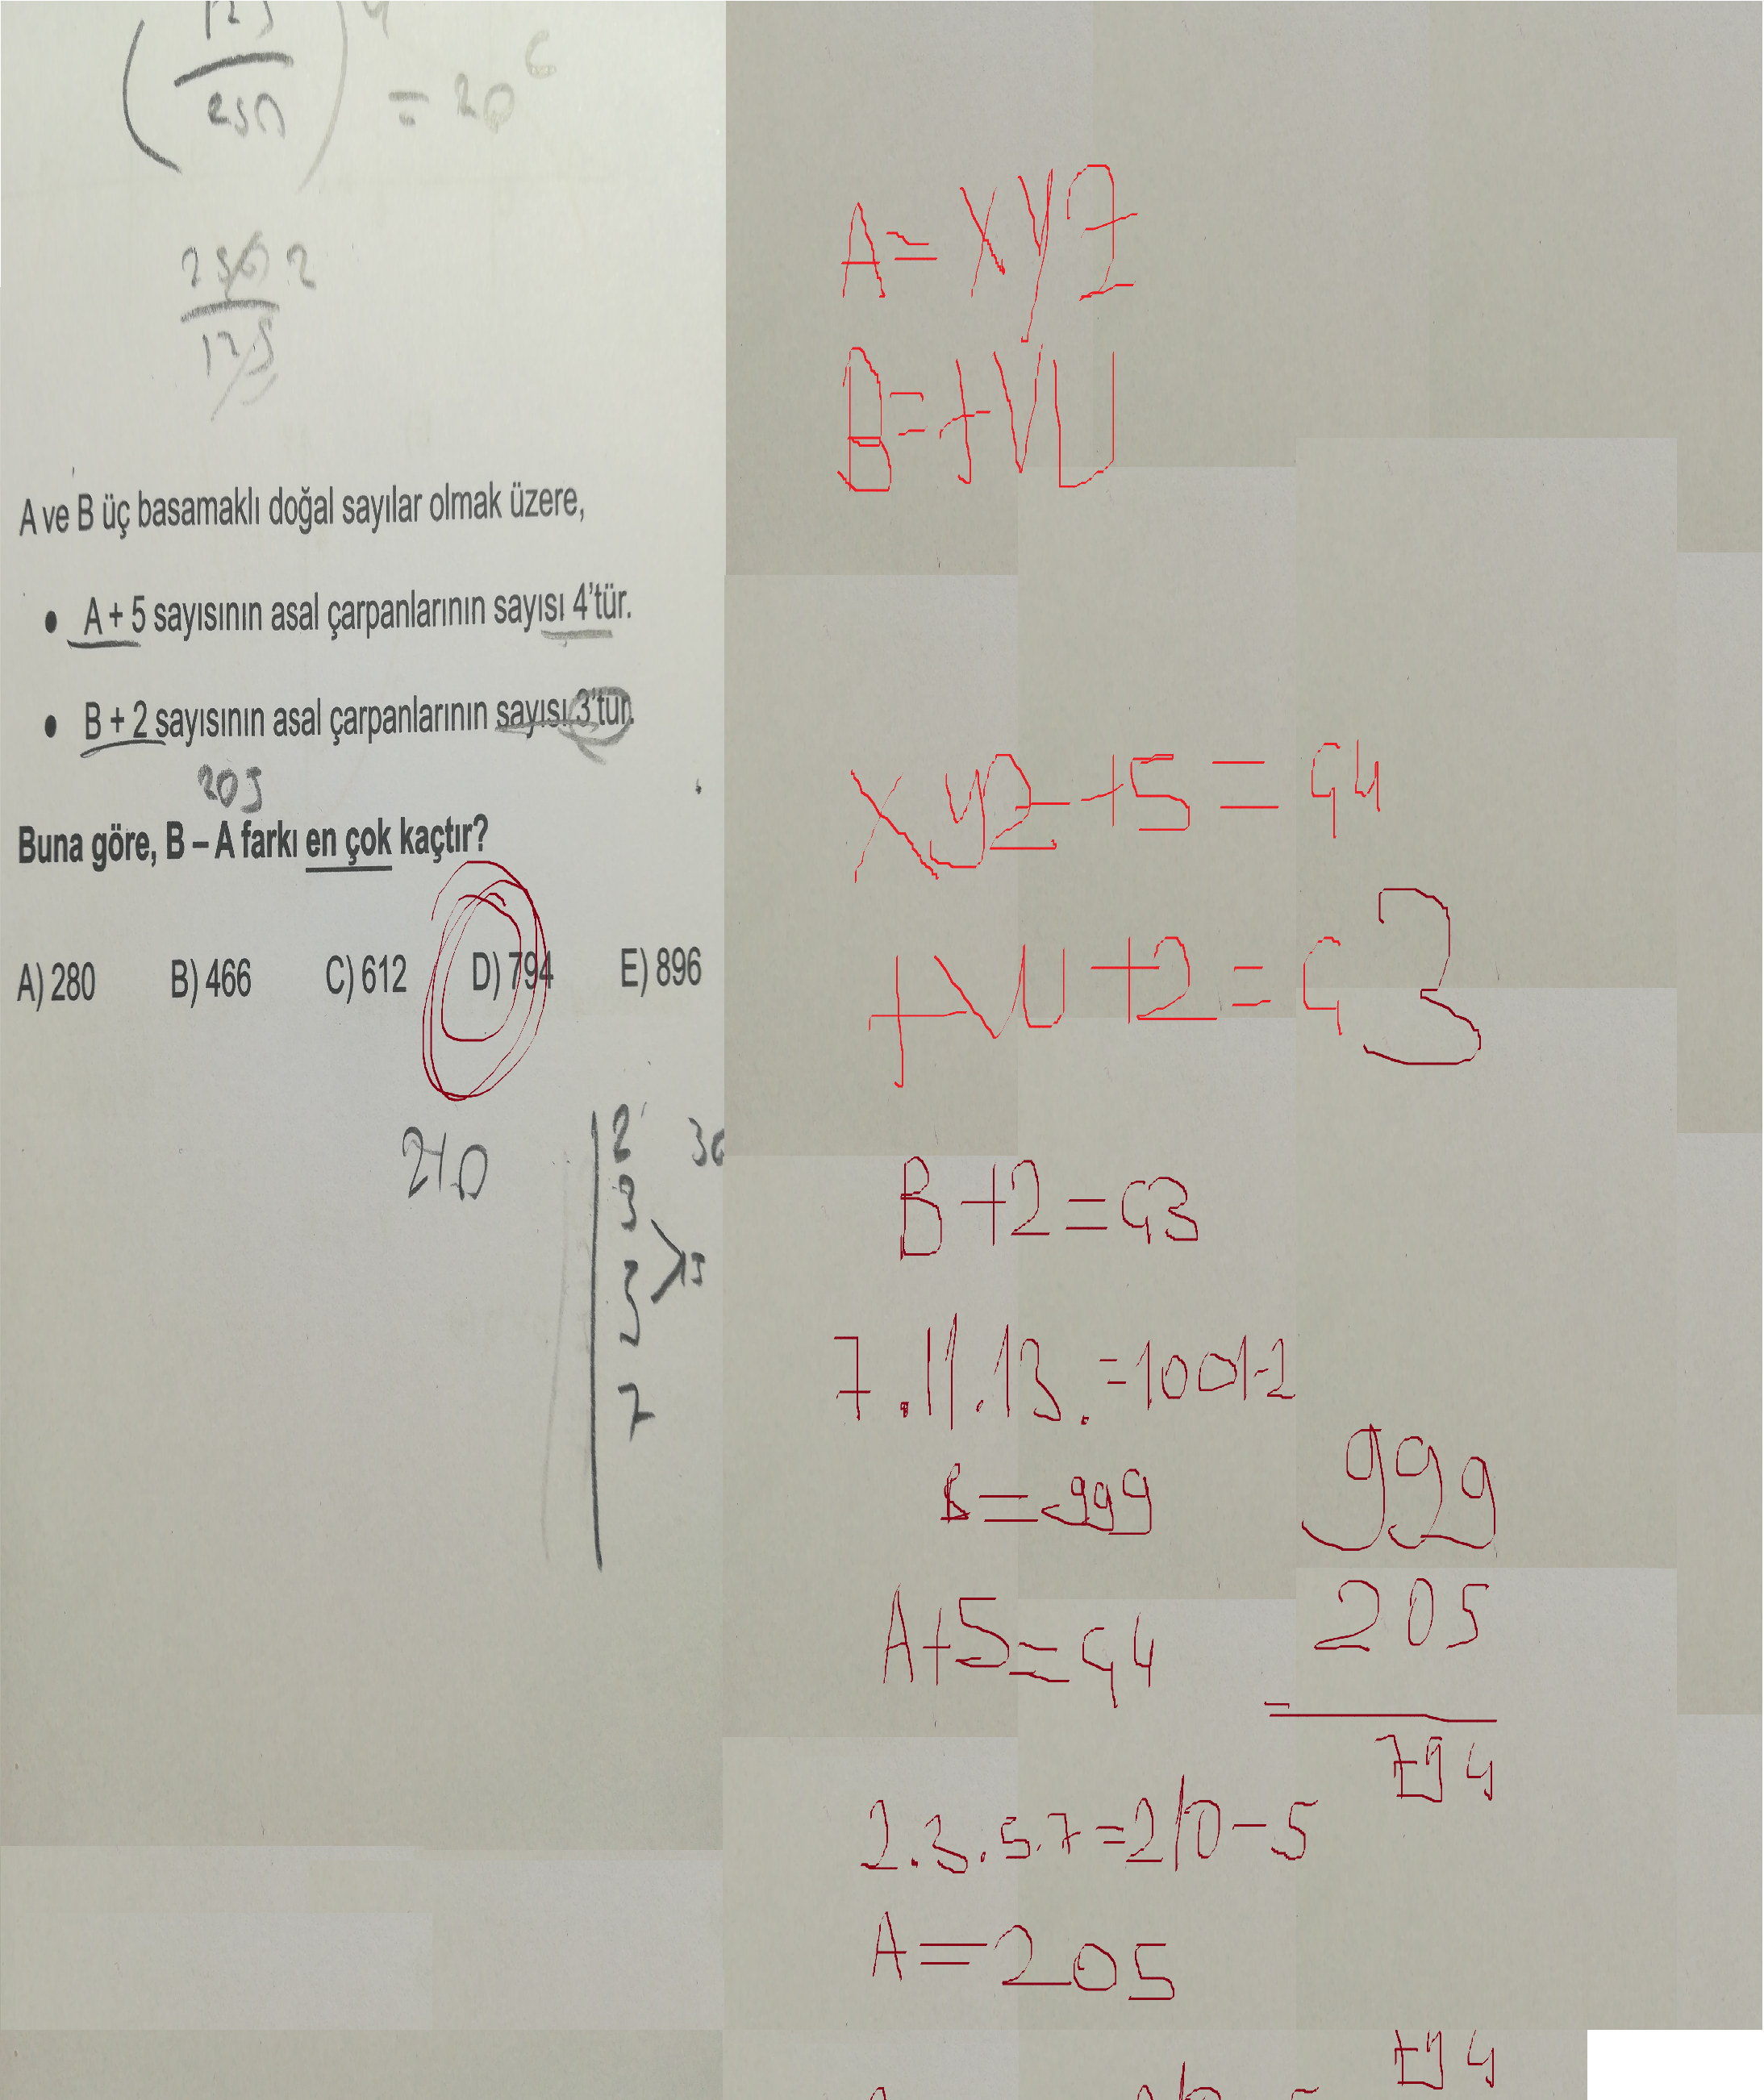 (125/250)⁴ = 20⁶
250 2
125
A ve B üç basamaklı doğal sayılar olmak üzere,
• A + 5 sayısının asal çarpanlarının sayısı 4'tür.
• B + 2 sayısının asal çarpanlarının sayısı 3'tür.
205
Buna göre, B – A farkı en çok kaçtır?
A) 280 B) 466 C) 612 D) 794 E) 896
210
2
3
5
7
15
A = xyz
B = tVU
xyz + 5 = Ç4
tVU + 2 = Ç3
B + 2 = Ç3
7.11.13. = 1001-2
B = 999
A + 5 = Ç4
2.3.5.7 = 210 - 5
A = 205
999
205
794
794